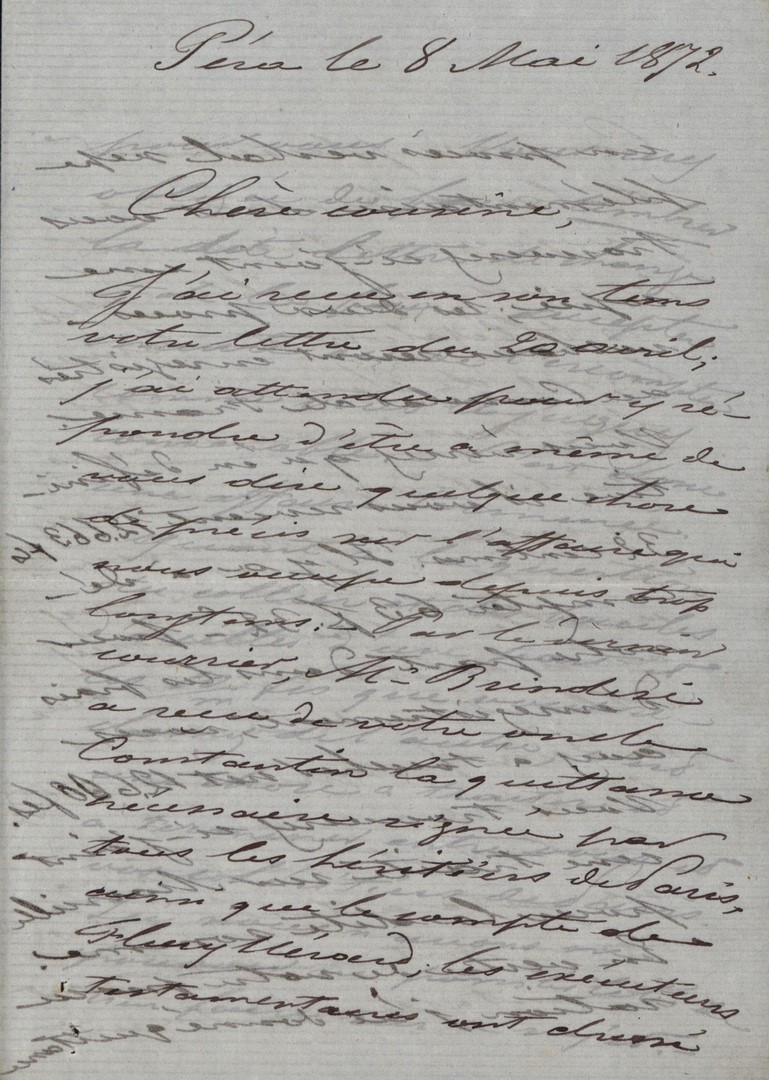 Péra le 8 Mai 1872.
Chère cousine,
J'ai reçu en son tems
votre lettre du 20 avril;
j'ai attendu pour y ré-
pondre d'être à même de
vous dire quelque chose
de précis sur l'affaire qui
nous occupe depuis trop
longtems. Par le dernier
courrier, Mr Brindisi
a reçu de votre oncle
Constantin la quittance
nécessaire signée par
tous les héritiers de Paris,
ainsi que le compte de
Fleury Hérard; les exécuteurs
testamentaires ont dressé